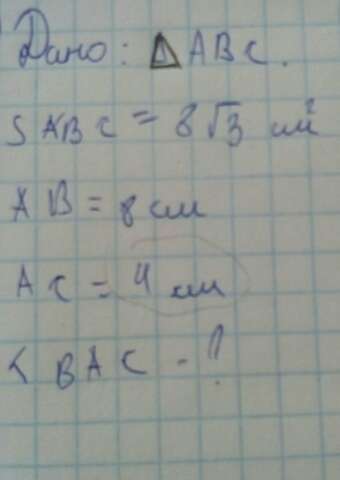 Дано: Δ ABC.
S ABC = 8√3 см²
AB = 8 см
AC = 4 см
< BAC - ?